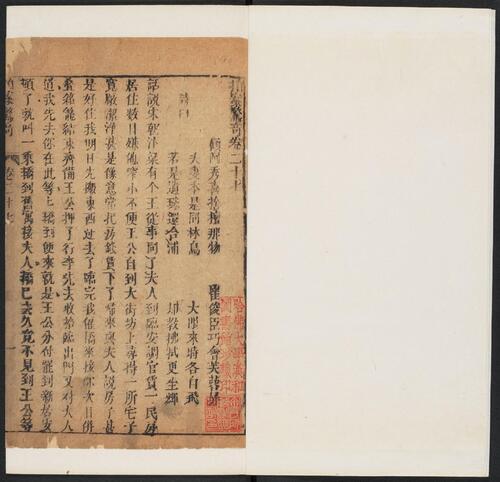 拍案驚奇卷二十七
顧阿秀喜捨檀那物　崔俊臣巧會芙蓉屏
詩曰
夫妻本是同林鳥　大限來時各自飛
若是遺珠還合浦　却教拂拭更生輝
話說宋朝汴梁有個王從事同了夫人到臨安調官賃一民房
居住數日嫌他窄小不便王公自到大街坊上尋得一所宅子
寬敞潔淨甚是像意當把房錢賃下了歸來與夫人說房子甚
是好住我明日先搬東西過去了臨完我僱轎來接你次日併
疊箱籠結束齊備王公押了行李先去收拾臨出門又對夫人
道我先去你在此等等轎到便來就是王公分付罷到新居安
頓了就叫一乘轎到舊寓接夫人轎已去久竟不見到王公等
卷二十七
一